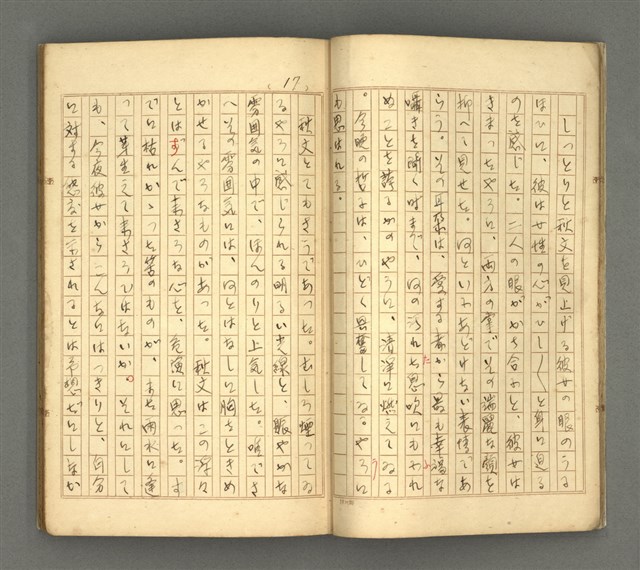 しつとりと秋文を見上げる彼女の眼のうる
ほひに、彼は女性の心がひし／＼と身に迫る
のを感じた。二人の眼がかち合ふと、彼女は
きまつたやうに、両方の掌でその端麗な顔を
抑へて見せた。何といふあどけない表情であ
らう。その耳朶は、愛する者から最も幸福な
囁きを聞く時まで、何の汚れた息吹にもふれ
ぬことを誇るかのやうに、清浄に燃えてゐる
。今晩の哲子は、ひどく興奮してゐるやうに
も思はれる。
17
秋文とてもさうであつた。むしろ煙つてゐ
るやうに感じられる明るい光線と、賑やかな
雰囲気の中で、ほんのりと上気した。唯でさ
へその雰囲気には、何とはなしに胸をときめ
かせてやるなものがあつた。秋文はこの浮々
とはずんで来さうな心を、危演に思つた。す
でに枯れかゝつた筈のものが、また雨水に逢
つて芽生えて来さうではないか。それにして
も、今夜彼女からこんなにはつきりと、自分
に対する態度を示されるとは予想だにしなか